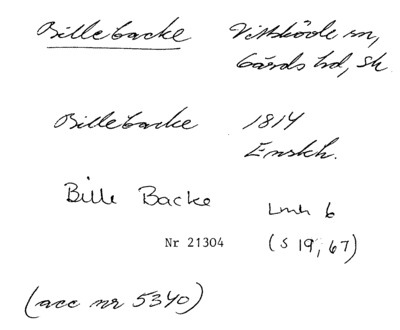 Billebacke Vittskövle sn,
Gärds hd, Sk
Billebacke 1814
Enskh.
Bille Backe Lmh 6
Nr 21304 (s 19, 67)
(acc nr 5340)